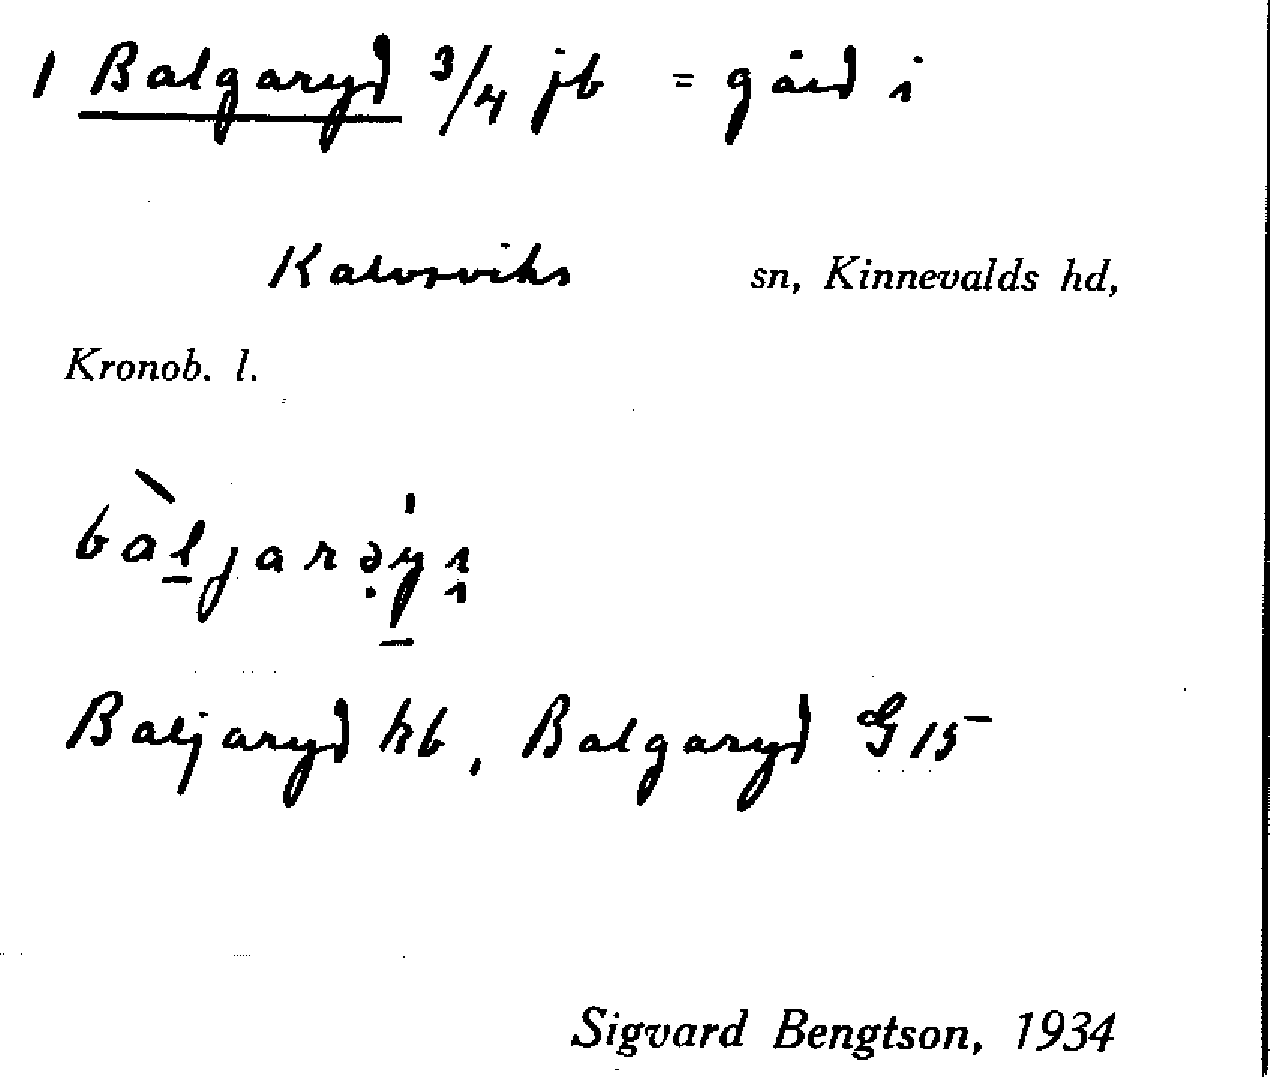 1 Balgaryd 3/4 jb = gård i
Kalvsviks sn, Kinnevalds hd,
Kronob. l.
Baljaryd kb, Balgaryd G 15
Sigvard Bengtson, 1934